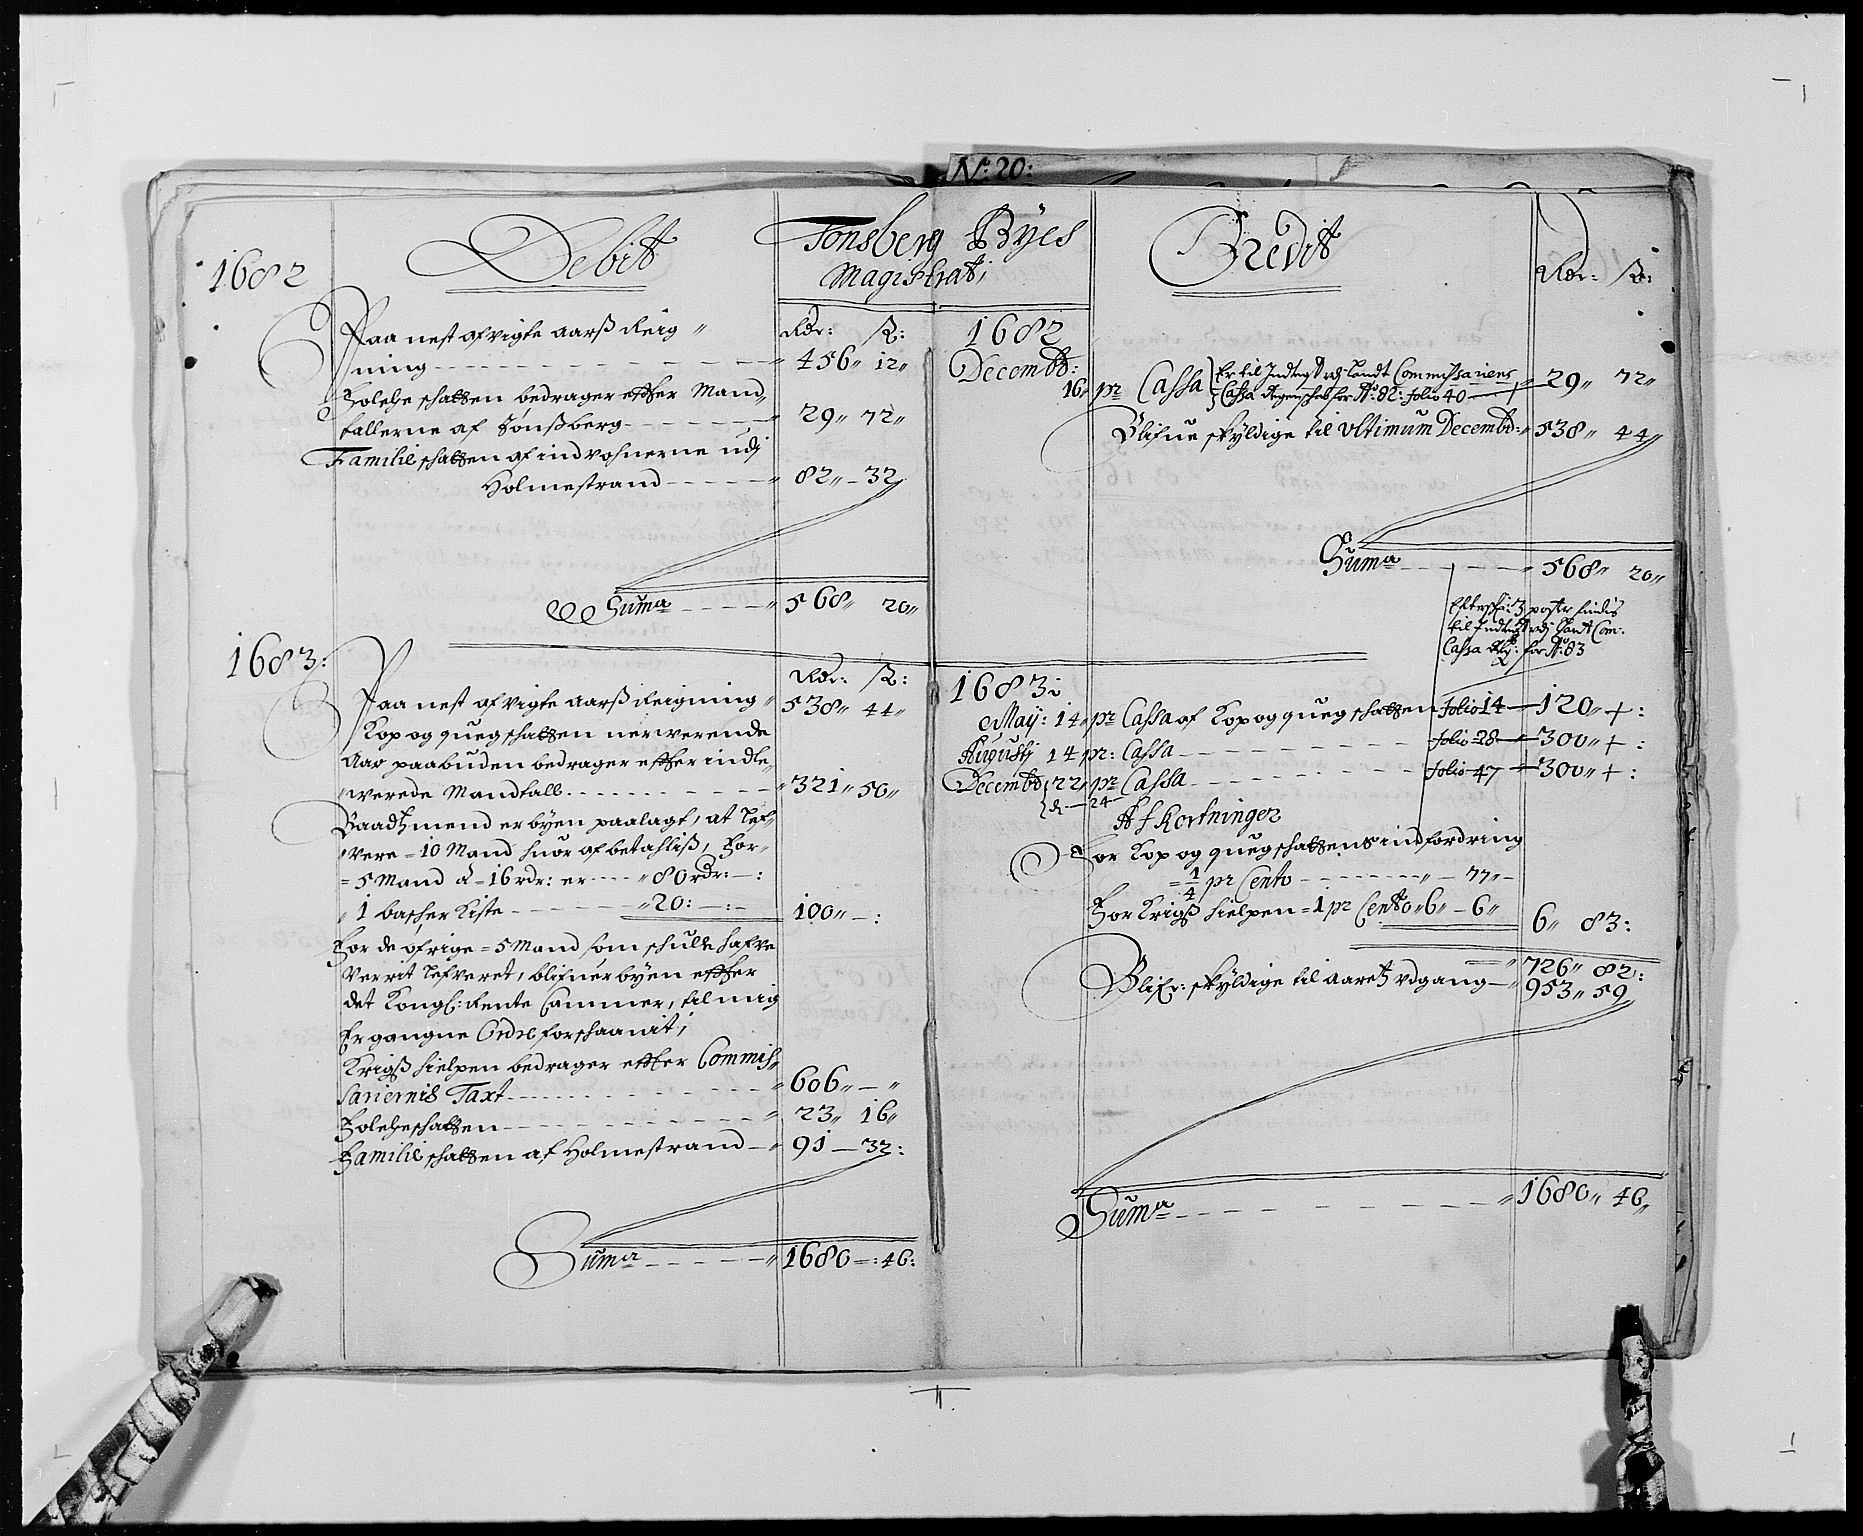 No: 20:
Tonsberg Byes
Magistrat;
Debit
1682
Rdr: ß:
Paa nest afvigte aarß Reig„
ning „ 456„ 12„
Folcheschatten bedrager efter Mand„
tallerne af Tønßberg „ 29„ 72„
Familieschatten af indvohnerne udj
Holmestrand „ 82„ 32
Suma „ 568„ 20„
1683:
Rdr: ß:
Paa nest afvigte aarß Reigning „ 538„ 44„
Kop og quegschatten nerwerende
Aar paabuden bedrager efter indle„
werede Mandtall „ 321„ 50„
Baadtzmend er byen paalagt, at lef„
vere = 10 Mand huor af betahliß, For„
= 5 Mand à = 16 rdr: er „ 80 rdr: — :
„ 1 Kiste „ 20: — : 100„ — :
For de ofrige = 5 Mand som schulle hafve
Verrit lefveret, blifuer byen efter
det Kongl: Rente Cammer, til mig
Ergangne Ordre forschaanit;
Krigß hielpen bedrager efter Commis„
sariernis Taxt „ 606„ — „
Folcheschatten „ 23„ 16„
Familieschatten af Holmestrand „ 91 — 32:
Suma „ 1680 = : 46:
Credit
Rdr: ß:
1682
Decembr:
16„ pr Cassa Er til Indtegt udj Landt Commissariens
Cassa Regenschab for Ao: 82: folio 40 29„ 72„
Blifue skyldige til Ultimum Decembr: „ 538„ 44„
Suma „ 568„ 20„
3 poster findis
til Indtegt udj Landt Com:
Cassa for Ao: 83
1683
Maij: 14„ pr Cassa af Kop og queg schatten folio 14 120„ + :
Augustj 14 pr: Cassa folio 28 300„ + :
Decembr 22„ pr Cassa folio 47 300„ + :
d — 24
Afkortninger
For Kop og quegschattens indfordring
= 1/4 pr Cento „ — 77„ —
For Krigß hielpen = 1 pr Cento „ 6„ — 6„ 6„ 83:
„ 726„ 82:
Blifr: skyldige til aaretz Udgang „ 953„ 59
Suma „ 1680„ 46„